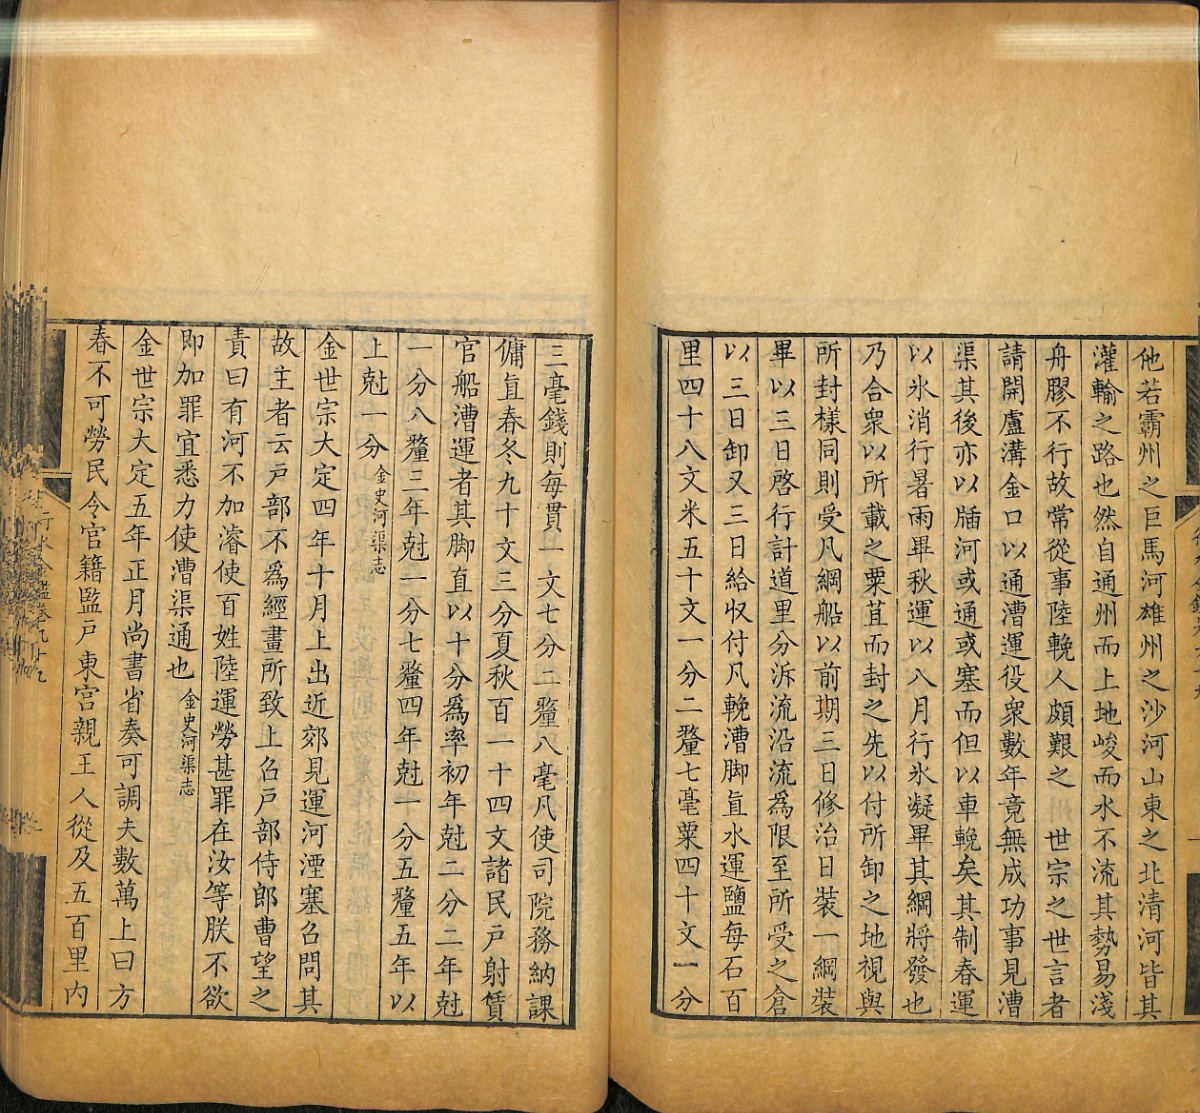 他若霸州之巨馬河雄州之沙河山東之北清河皆其
灌輸之路也然自通州而上地峻而水不流其勢易淺
舟膠不行故常從事陸輓人頗艱之　世宗之世言者
請開盧溝金口以通漕運役衆數年竟無成功事見漕
渠其後亦以牐河或通或塞而但以車輓矣其制春運
以氷消行暑雨畢秋運以八月行氷凝畢其綱將發也
乃合衆以所載之粟苴而封之先以付所卸之地視與
所封樣同則受凡綱船以前期三日修治日裝一綱裝
畢以三日啓行計道里分泝流沿流爲限至所受之倉
以三日卸又三日給収付凡輓漕脚直水運鹽每石百
里四十八文米五十文一分二釐七毫粟四十文一分
三毫錢則每貫一文七分二釐八毫凡使司院務納課
傭直春冬九十文三分夏秋百一十四文諸民戸射賃
官船漕運者其脚直以十分爲率初年尅二分二年尅
一分八釐三年尅一分七釐四年尅一分五釐五年以
上尅一分金史河渠志
金世宗大定四年十月上出近郊見運河湮塞召問其
故主者云戸部不爲經畫所致上召戸部侍郎曹望之
責曰有河不加濬使百姓陸運勞甚罪在汝等朕不欲
即加罪宜悉力使漕渠通也金史河渠志
金世宗大定五年正月尚書省奏可調夫數萬上曰方
春不可勞民令官籍監戸東宮親王人從及五百里內